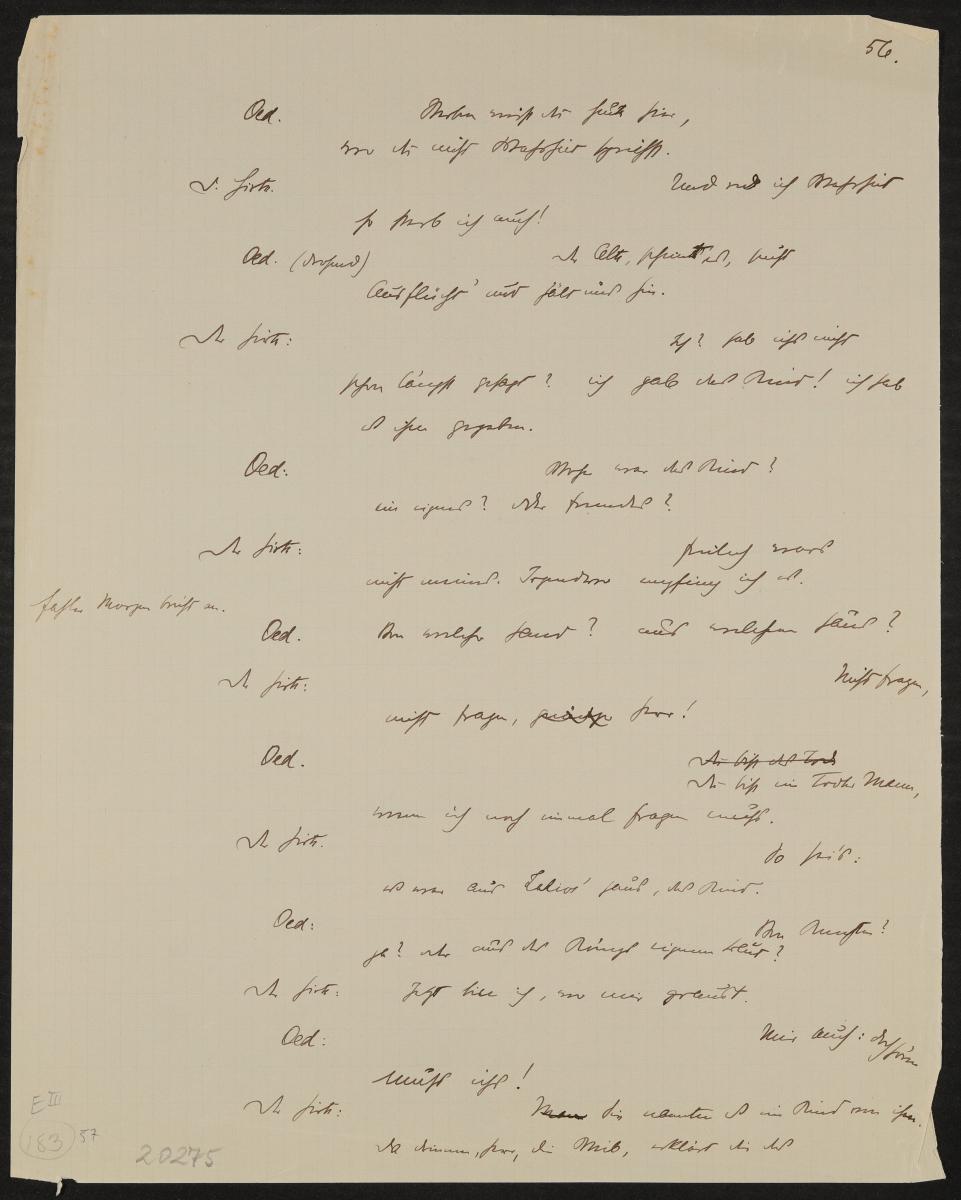 56.
Oed. Sterben wirst du heute hier,
wo du nicht Wahrheit sprichst.
D. Hirte. Und red ich Wahrheit
so sterb ich auch!
Oed. (drohend) der Alte, scheint es, sucht
Ausflücht' und hält uns hin.
Der Hirte: Ich? hab ichs nicht
schon längst gesagt? ich gab das Kind! ich hab
es ihm gegeben.
Oed: Woher war das Kind?
ein eignes? oder fremdes?
Der Hirte: freilich wars
nicht meines. Irgendwo empfing ich es.
fahler Morgen bricht an.
Oed. Von welcher Hand? aus welchem Haus?
Der Hirte: Nicht fragen,
nicht fragen, Herr!
Oed. Du bist des Tods
Du bist ein todter Mann,
wenn ich noch einmal fragen muss.
Der Hirte. So sei's:
es war aus Laïos' Haus, das Kind.
Oed: Von Knechten?
ja? oder aus des Königs eignem Blut?
Der Hirte: Jetzt bin ich, wo mir graust.
Oed: Mir auch: doch hören
muss ichs!
Der Hirte: Man Sie nannten es ein Kind von ihm.
Da drinnen, Herr, die Weib, erklärt dir das
E III
183 57
20275